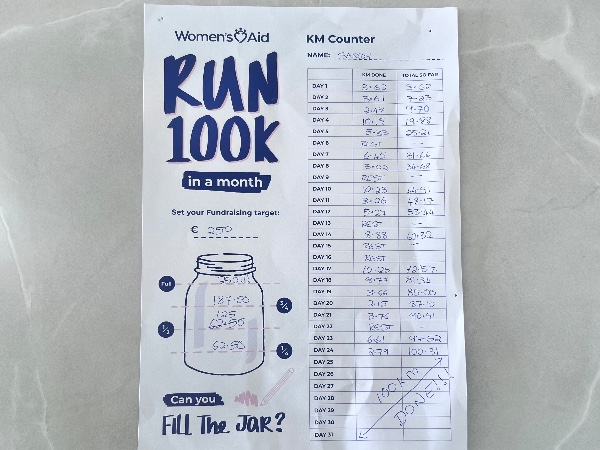 Women's Aid
RUN
100K
in a month
Set your Fundraising target:
€ 250
Full
187.50
3/4
125
1/2
62.50
62.50
1/4
Can you
FILL The JAR?
KM Counter
NAME:
KM DONE TOTAL SO FAR
DAY 1 3.62 3.62
DAY 2 3.61 7.23
DAY 3 2.47 9.70
DAY 4 19.88
DAY 5 5.33 25.21
DAY 6 REST -
DAY 7 6.45 31.66
DAY 8 3.02 34.68
DAY 9 REST --
DAY 10 10.23 44.91
DAY 11 3.26 48.17
DAY 12 5.27 53.44
DAY 13 REST --
DAY 14 8.88 62.32
DAY 15 REST --
DAY 16 REST
DAY 17 10.25 72.57
DAY 18 8.77 81.34
DAY 19 3.66
DAY 20
DAY 21 3.76
DAY 22 REST
DAY 23 6.61
DAY 24 2.79
DAY 25
DAY 26
DAY 27
DAY 28
DAY 29
DAY 30
DAY 31
100KM
DONE!!!